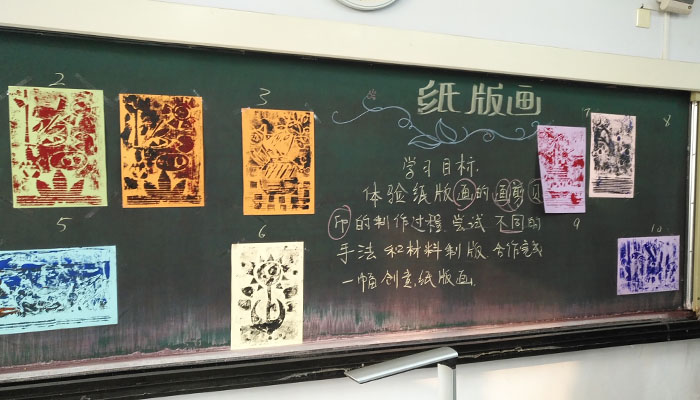 纸版画
学习目标.
体验纸版画的画剪
印的制作过程 尝试不同的
手法和材料制版 合作完成
一幅创意纸版画.
2
3
7
8
5
6
9
10